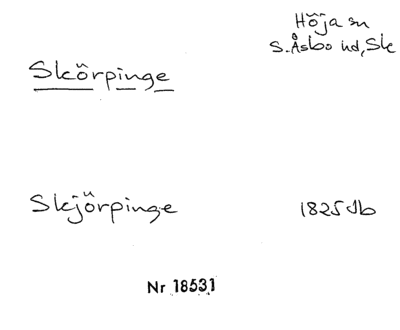 Höja sn
S. Åsbo hd, Sk
Skörpinge
Skjörpinge 1825 Jb
Nr 18531